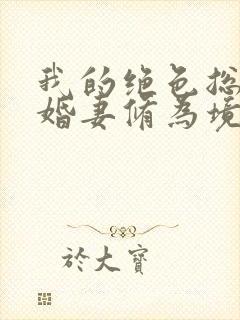 我的绝色总
婚妻脩为境
於大寶